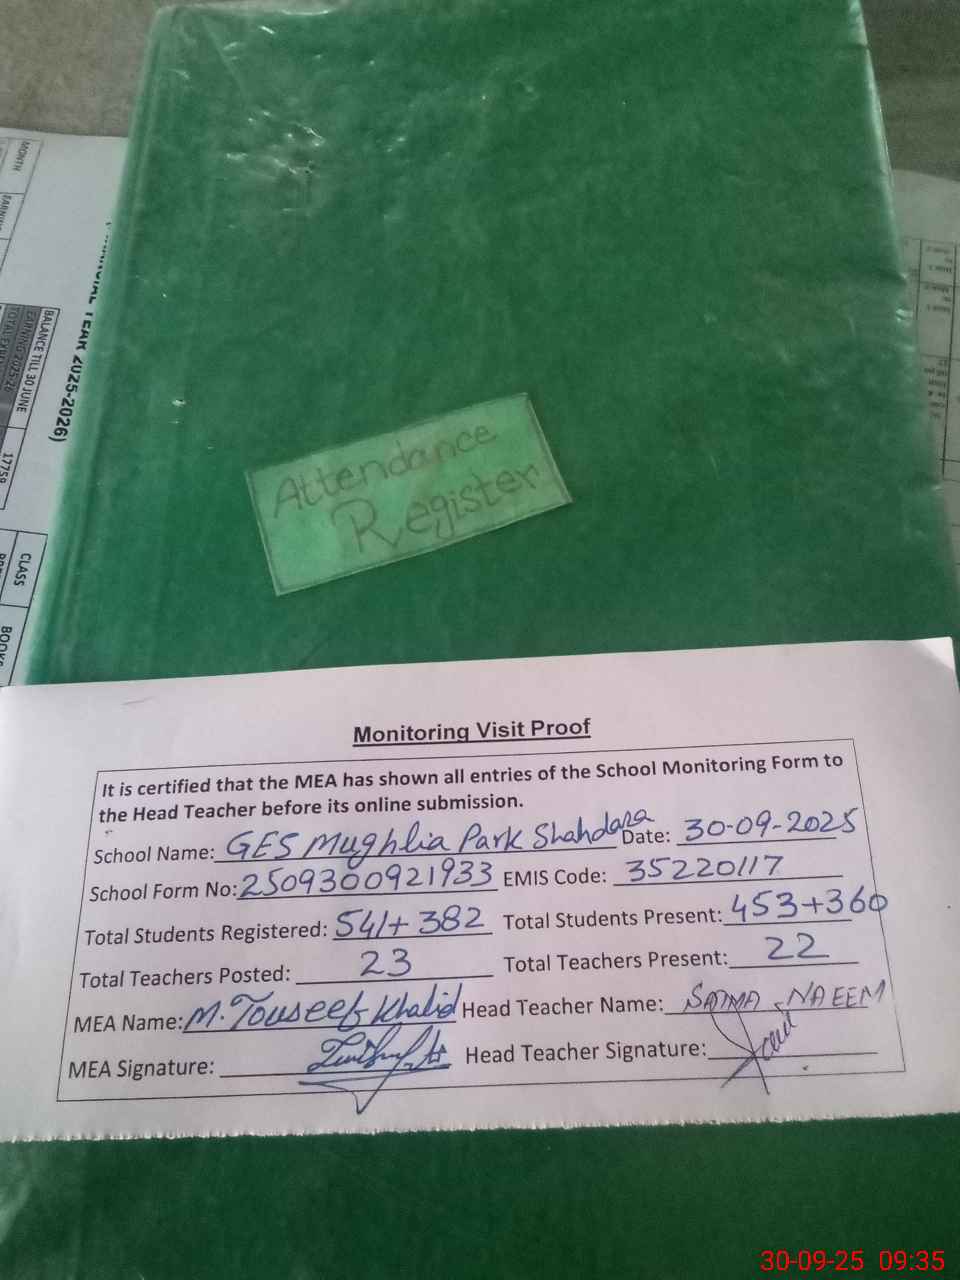 MONTH
FINANCIAL YEAR 2025-2026)
BALANCE TILL 30 JUNE
EARNING 2025-26
17759
CLASS
BOOKS
Attendance
Register
Monitoring Visit Proof
It is certified that the MEA has shown all entries of the School Monitoring Form to
the Head Teacher before its online submission.
School Name: GES Mughlia Park Shahdara Date: 30-09-2025
School Form No: 2509300921933 EMIS Code: 35220117
Total Students Registered: 541+382 Total Students Present: 453+360
Total Teachers Posted: 23 Total Teachers Present: 22
MEA Name: M. Touseef Khalid Head Teacher Name: SAIMA NAEEM
MEA Signature: Head Teacher Signature:
30-09-25 09:35